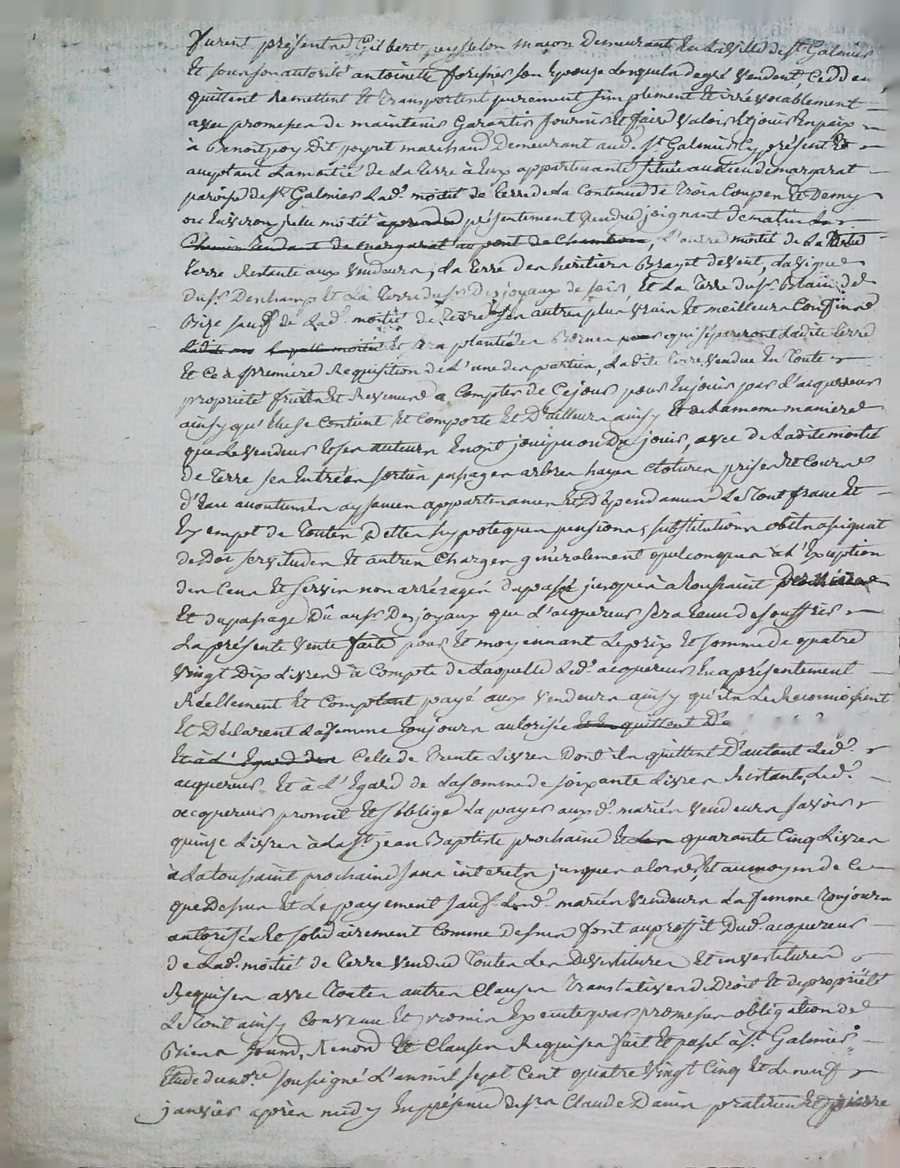 furent présents Gilbert peysselon macon Demeurant En la ville de St Galmier
Et sous son autorité antoinette forissier son Epouse lesquels de gré vendent, cedent
quittent Remettent Et transportent purement simplement Et irrévocablement
avec promesse de maintenir Garantir fournir Et faire valoir Et jouir En paix
a Benoit poy dit peyret marchand Demeurant aud. St Galmier Cy présent Et
acceptant La moitié de La terre à Eux appartenante située au lieu de margarat
paroisse de St Galmier Lad. moitié de terre de la Contenue de trois Coupes Et Demy
ou Environ, jcelle moitié à prendre présentement vendue joignant de matin le
Chemin tendant de margarat au pont de Chambœuf, L'autre moitié de La dite
terre Restante aux vendeurs, La terre des héritiers de vent, La vigne
du Sr Deschamp Et La terre du Sr Desjoyaux de soir Et La terre du Sr de
Bize sauf de Lad. moitié de terre ses autres plus vrais Et meilleurs Confins
Ladite laquelle moitié Et sera planté des Bornes pour qui sépareront Ladite terre
Et Ce à première Requisition de L'une des parties, Ladite terre vendue En toute
propriété fruits Et Revenus a Compter de Ce jour pour En jouir par L'acquereur
ainsy qu'elle se Contient Et Comporte Et D'ailleurs ainsy Et de la meme maniere
que Le vendeur Et ses auteurs En ont joui ou Du jouir, avec de Ladite moitié
de terre ses Entrées sorties passages arbres hayes clotures prises Et Cours
d'Eau accoutumés aysances appartenances Et Dépendances Le tout franc Et
Exempt de toutes Dettes hypoteques pensions, substitutions obits assignat
de Dot servitudes Et autres Charges généralement quelconques à L'Exception
des Cens Et servis non arréragés du passé jusques à la toussaint derniere
Et du passage Dû au Sr Desjoyaux que L'acquereur sera tenu de souffrir
La présente vente faite pour Et moyennant Le prix Et somme de quatre
vingt Dix Livres à Compte de Laquelle Led. acquereur En a présentement
Réellement Et Comptant payé aux vendeurs ainsy qu'ils Le Reconnoissent
Et Déclarent La femme toujours autorisée Et En quittent De
Et à L'Egard des Celle de trente Livres Dont ils quittent D'autant Led.
acquereur. Et à L'Egard de La somme de soixante Livres Restante, Led.
acquereur promet Et s'oblige La payer auxd. mariés vendeurs savoir
quinze Livres à La St jean Baptiste prochaine Et Les quarante Cinq Livres
à La toussaint prochaine sans interets jusques alors, Et au moyen de Ce
que Dessus Et Le payement sauf Lesd. mariés vendeurs La femme toujours
autorisée Et solidairement Comme dessus font au proffit Dud. acquereur
de Lad. moitié de terre vendue toutes Les Devetitures Et investitures
Requises avec toutes autres Clauses translatives de Droit Et de propriété
Le tout ainsy Convenu Et promis Executer par promesse obligation de
Biens soumd. Renond. Et Clauses Requises fait Et passé à St Galmier
Etude du nore soussigné L'an mil sept Cent quatre vingt Cinq Et Le neuf
janvier après midy En présence de Sr Claude Danin praticien Et pierre